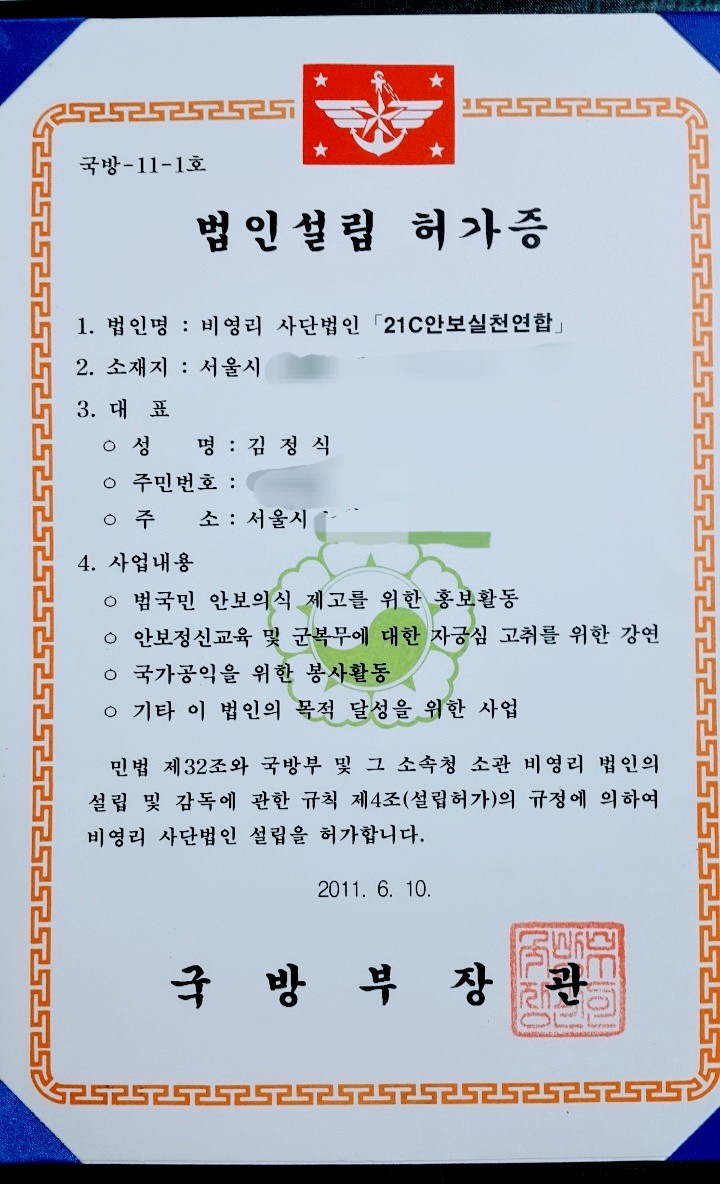 국방-11-1호
법인설립 허가증
1. 법인명 : 비영리 사단법인「21C안보실천연합」
2. 소재지 : 서울시
3. 대 표
○ 성 명 : 김 정 식
○ 주민번호 :
○ 주 소 : 서울시
4. 사업내용
○ 범국민 안보의식 제고를 위한 홍보활동
○ 안보정신교육 및 군복무에 대한 자긍심 고취를 위한 강연
○ 국가공익을 위한 봉사활동
○ 기타 이 법인의 목적 달성을 위한 사업
민법 제32조와 국방부 및 그 소속청 소관 비영리 법인의
설립 및 감독에 관한 규칙 제4조(설립허가)의 규정에 의하여
비영리 사단법인 설립을 허가합니다.
2011. 6. 10.
국 방 부 장 관